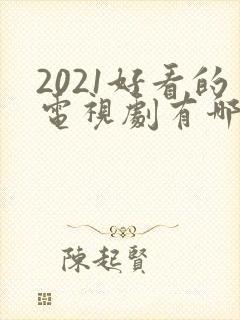 2021好看的
電視劇有哪
陳起賢